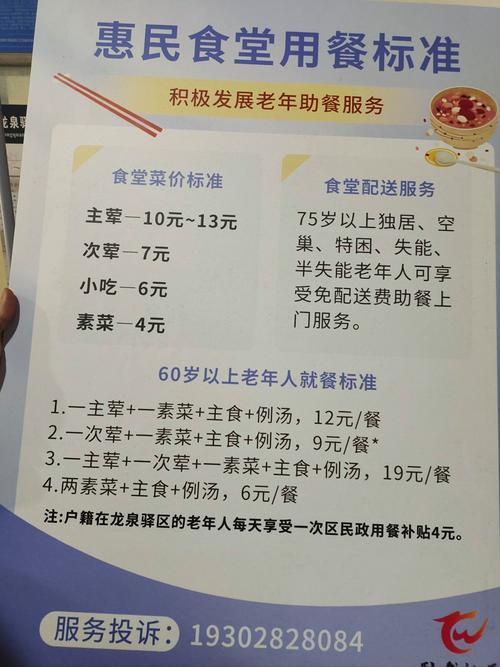 惠民食堂用餐标准
积极发展老年助餐服务
龙泉驿
食堂菜价标准
主荤—10元~13元
次荤—7元
小吃—6元
素菜—4元
食堂配送服务
75岁以上独居、空
巢、特困、失能、
半失能老年人可享
受免配送费助餐上
门服务。
60岁以上老年人就餐标准
1.一主荤+一素菜+主食+例汤，12元/餐
2.一次荤+一素菜+主食+例汤，9元/餐*
3.一主荤+一次荤+一素菜+主食+例汤，19元/餐
4.两素菜+主食+例汤，6元/餐
注:户籍在龙泉驿区的老年人每天享受一次区民政用餐补贴4元。
服务投诉：19302828084